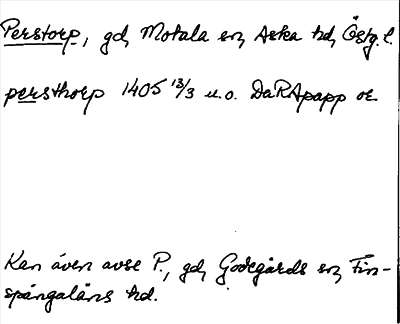 Perstorp, gd, Motala sn, Aska hd, Östg. l.
persthorp 1405 13/3 u.o. DaRApapp or.
Kan även avse P., gd, Godegårds sn, Fin-
spångaläns hd.